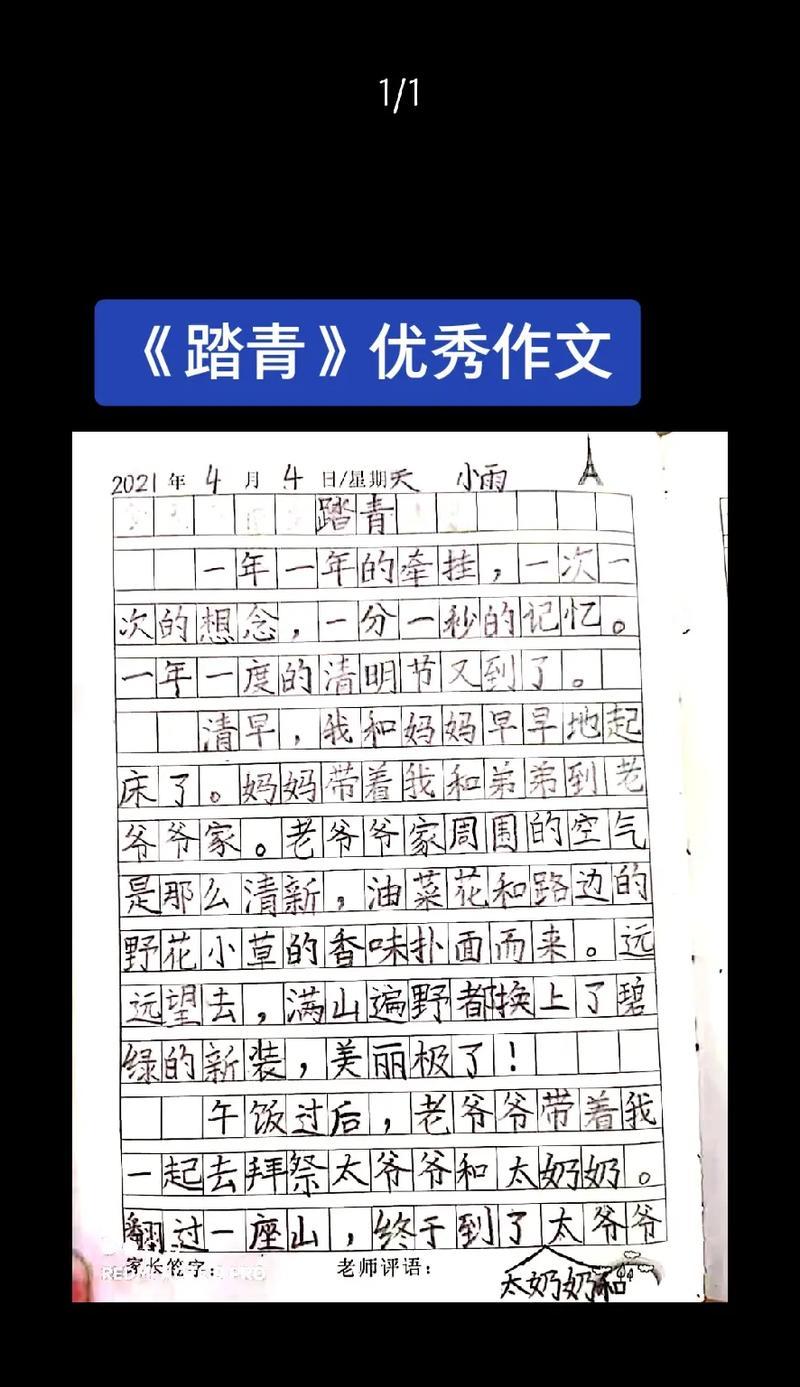 1/1
《踏青》优秀作文
2021年4月4日/星期天 小雨
踏青
一年一年的牵挂，一次一
次的想念，一分一秒的记忆。
一年一度的清明节又到了。
清早，我和妈妈早早地起
床了。妈妈带着我和弟弟到老
爷爷家。老爷爷家周围的空气
是那么清新，油菜花和路边的
野花小草的香味扑面而来。远
远望去，满山遍野都换上了碧
绿的新装，美丽极了！
午饭过后，老爷爷带着我
一起去拜祭太爷爷和太奶奶。
翻过一座山，终于到了太爷爷
家长签字： 老师评语：
太奶奶和